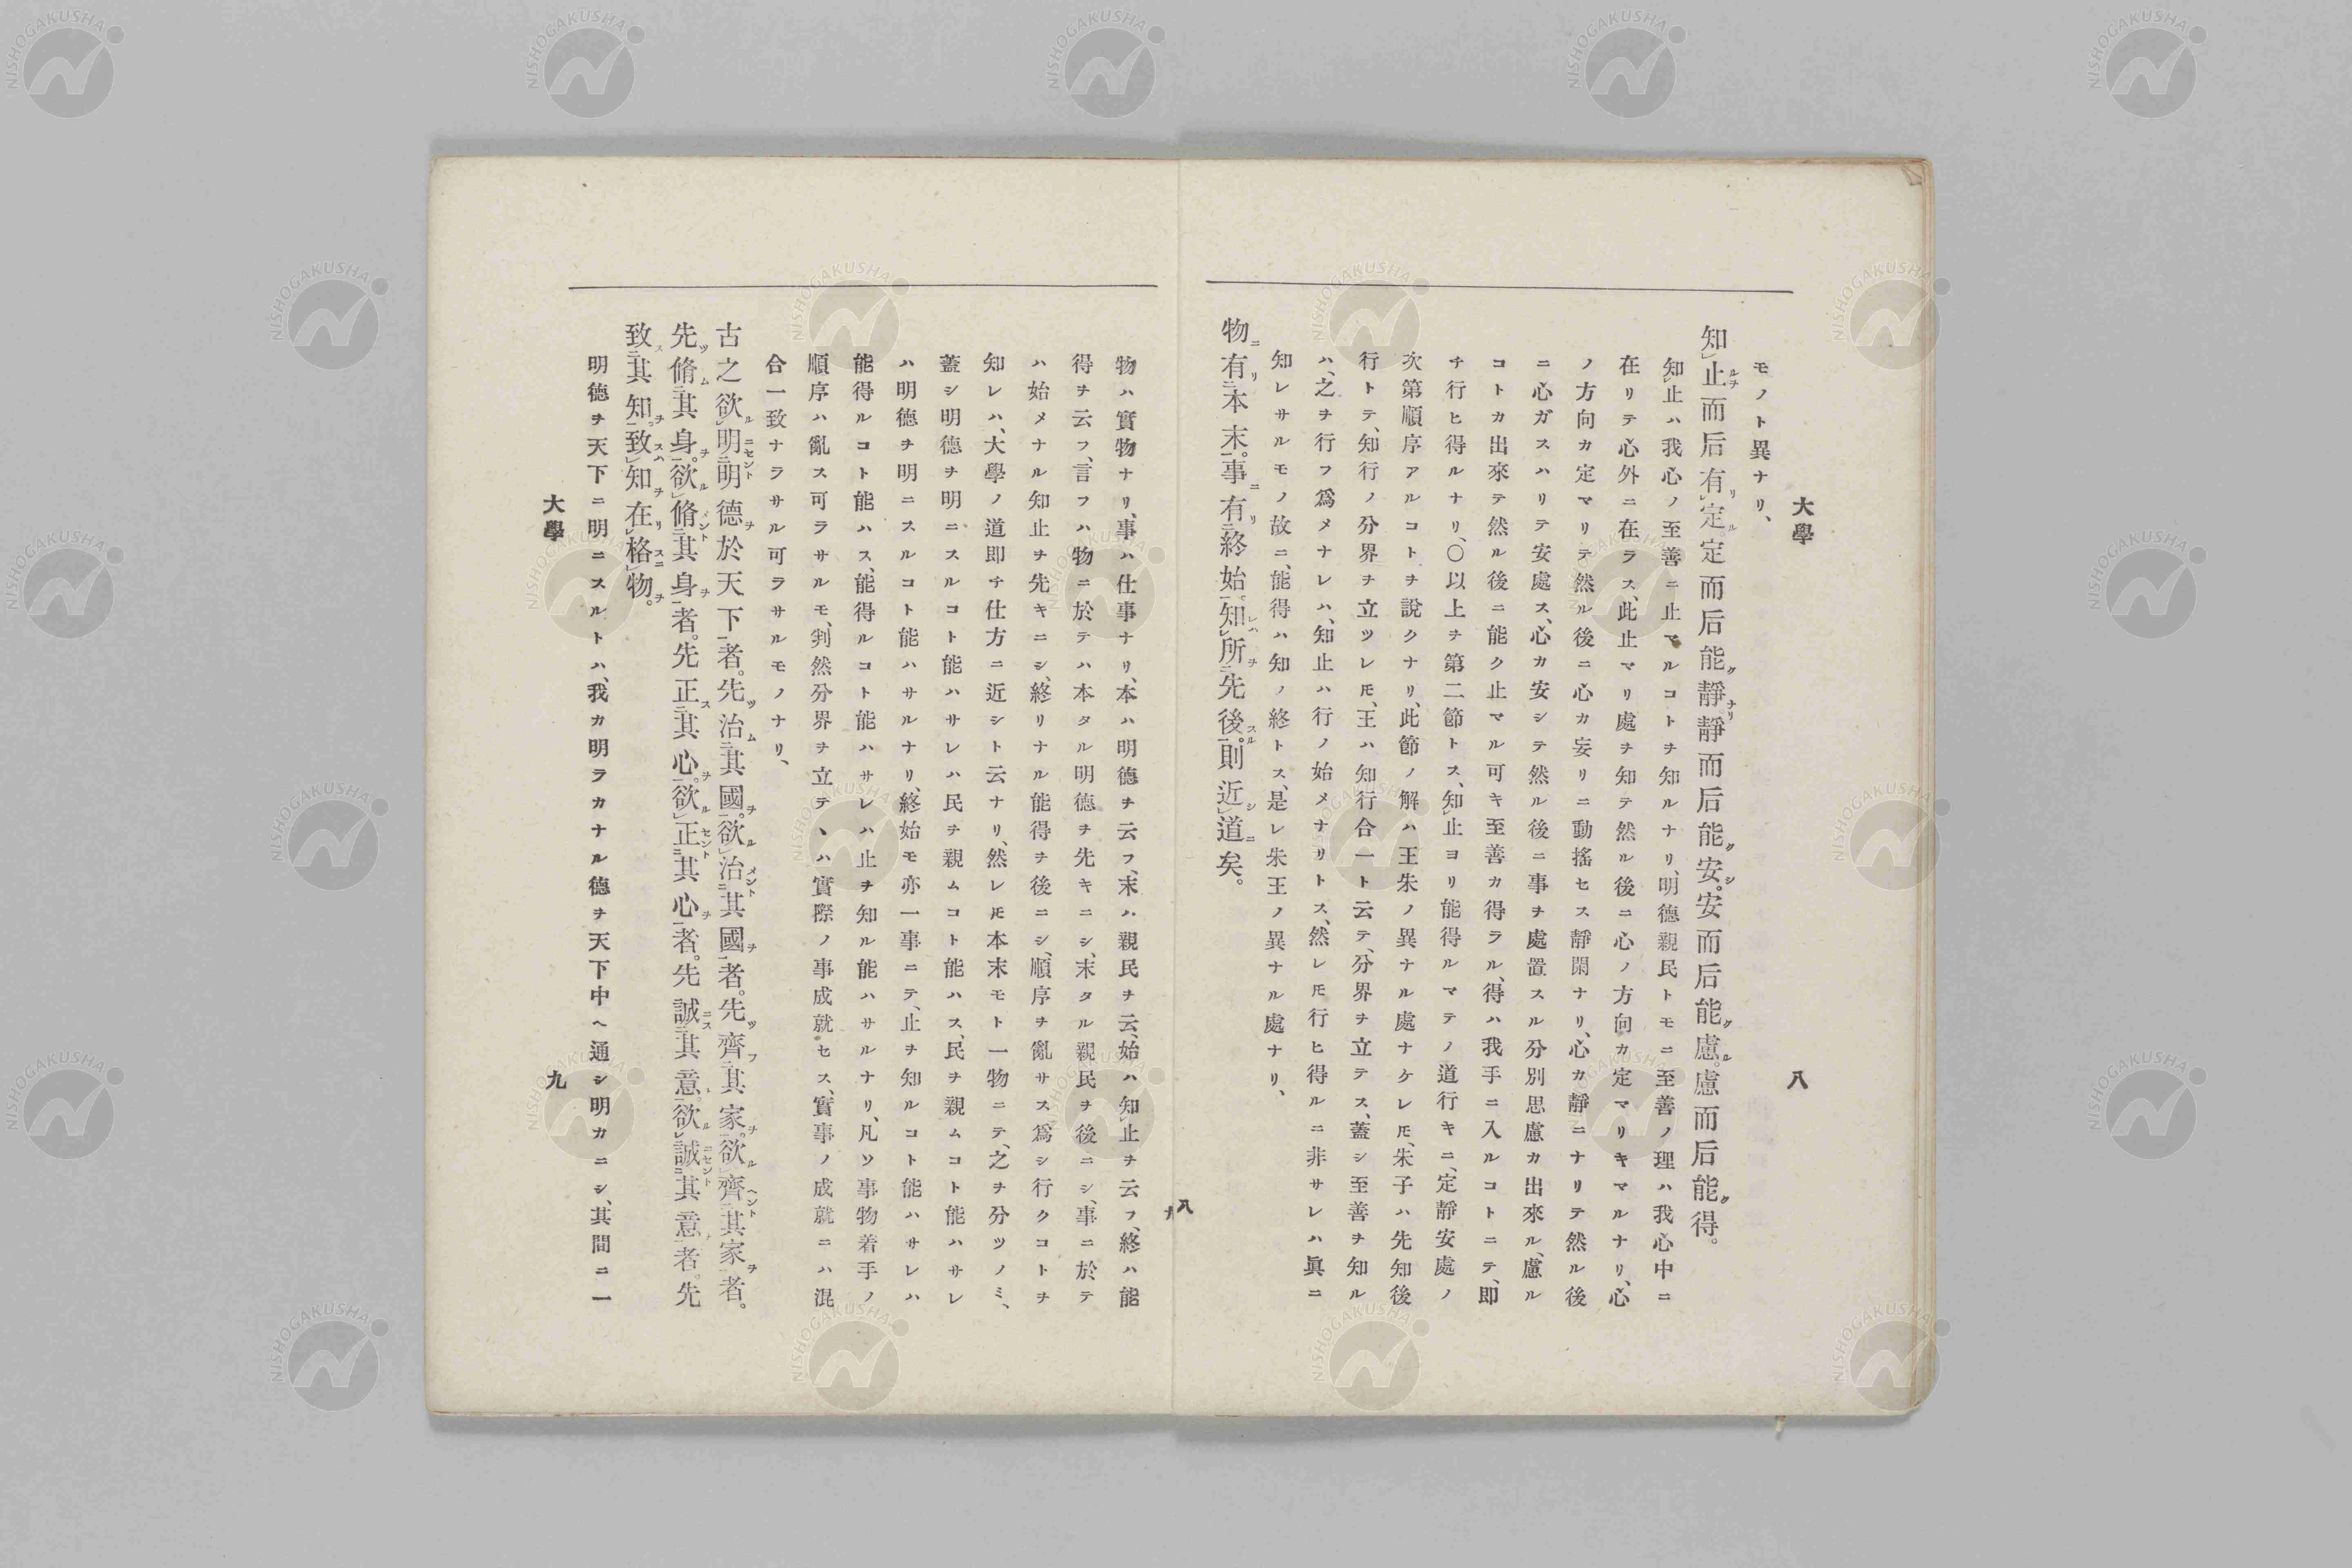 大學
八
モノト異ナリ、
知止而后有定。定而后能靜。靜而后能安。安而后能慮。慮而后能得。
知止ハ我心ノ至善ニ止マルコトヲ知ルナリ、明德親民トモニ至善ノ理ハ我心中ニ
在リテ心外ニ在ラス、此止マリ處ヲ知テ然ル後ニ心ノ方向カ定マリキマルナリ、心
ノ方向カ定マリテ然ル後ニ心カ妄リニ動搖セス靜閑ナリ、心カ靜ニナリテ然ル後
ニ心ガスハリテ安處ス、心カ安シテ然ル後ニ事ヲ處置スル分別思慮カ出來ル、慮ル
コトカ出來テ然ル後ニ能ク止マル可キ至善カ得ラル、得ハ我手ニ入ルコトニテ、即
チ行ヒ得ルナリ、〇以上ヲ第二節トス、知止ヨリ能得ルマテノ道行キニ、定靜安處ノ
次第順序アルコトヲ說クナリ、此節ノ解ハ王朱ノ異ナル處ナケレ𪜈、朱子ハ先知後
行トテ、知行ノ分界ヲ立ツレ𪜈、王ハ知行合一ト云テ、分界ヲ立テス、蓋シ至善ヲ知ル
ハ、之ヲ行フ爲メナレハ、知止ハ行ノ始メナリトス、然レ𪜈行ヒ得ルニ非サレハ眞ニ
知レサルモノ故ニ、能得ハ知ノ終トス、是レ朱王ノ異ナル處ナリ、
物有本末。事有終始。知所先後。則近道矣。
八
物ハ實物ナリ、事ハ仕事ナリ、本ハ明德ヲ云フ、末ハ親民ヲ云、始ハ知止ヲ云フ、終ハ能
得ヲ云フ、言フハ物ニ於テハ本タル明德ヲ先キニシ、末タル親民ヲ後ニシ、事ニ於テ
ハ始メナル知止ヲ先キニシ、終リナル能得ヲ後ニシ、順序ヲ亂サス爲シ行クコトヲ
知レハ、大學ノ道即チ仕方ニ近シト云ナリ、然レ𪜈本末モト一物ニテ、之ヲ分ツノミ、
蓋シ明德ヲ明ニスルコト能ハサレハ民ヲ親ムコト能ハス、民ヲ親ムコト能ハサレ
ハ明德ヲ明ニスルコト能ハサルナリ、終始モ亦一事ニテ、止ヲ知ルコト能ハサレハ
能得ルコト能ハス、能得ルコト能ハサレハ止ヲ知ル能ハサルナリ、凡ソ事物着手ノ
順序ハ亂ス可ラサルモ、判然分界ヲ立テヽハ實際ノ事成就セス、實事ノ成就ニハ混
合一致ナラサル可ラサルモノナリ、
古之欲明明德於天下者。先治其國。欲治其國者。先齊其家。欲齊其家者。
先脩其身。欲脩其身者。先正其心。欲正其心者。先誠其意。欲誠其意者。先
致其知。致知在格物。
明德ヲ天下ニ明ニスルトハ、我カ明ラカナル德ヲ天下中ヘ通シ明カニシ、其間ニ一
大學
九